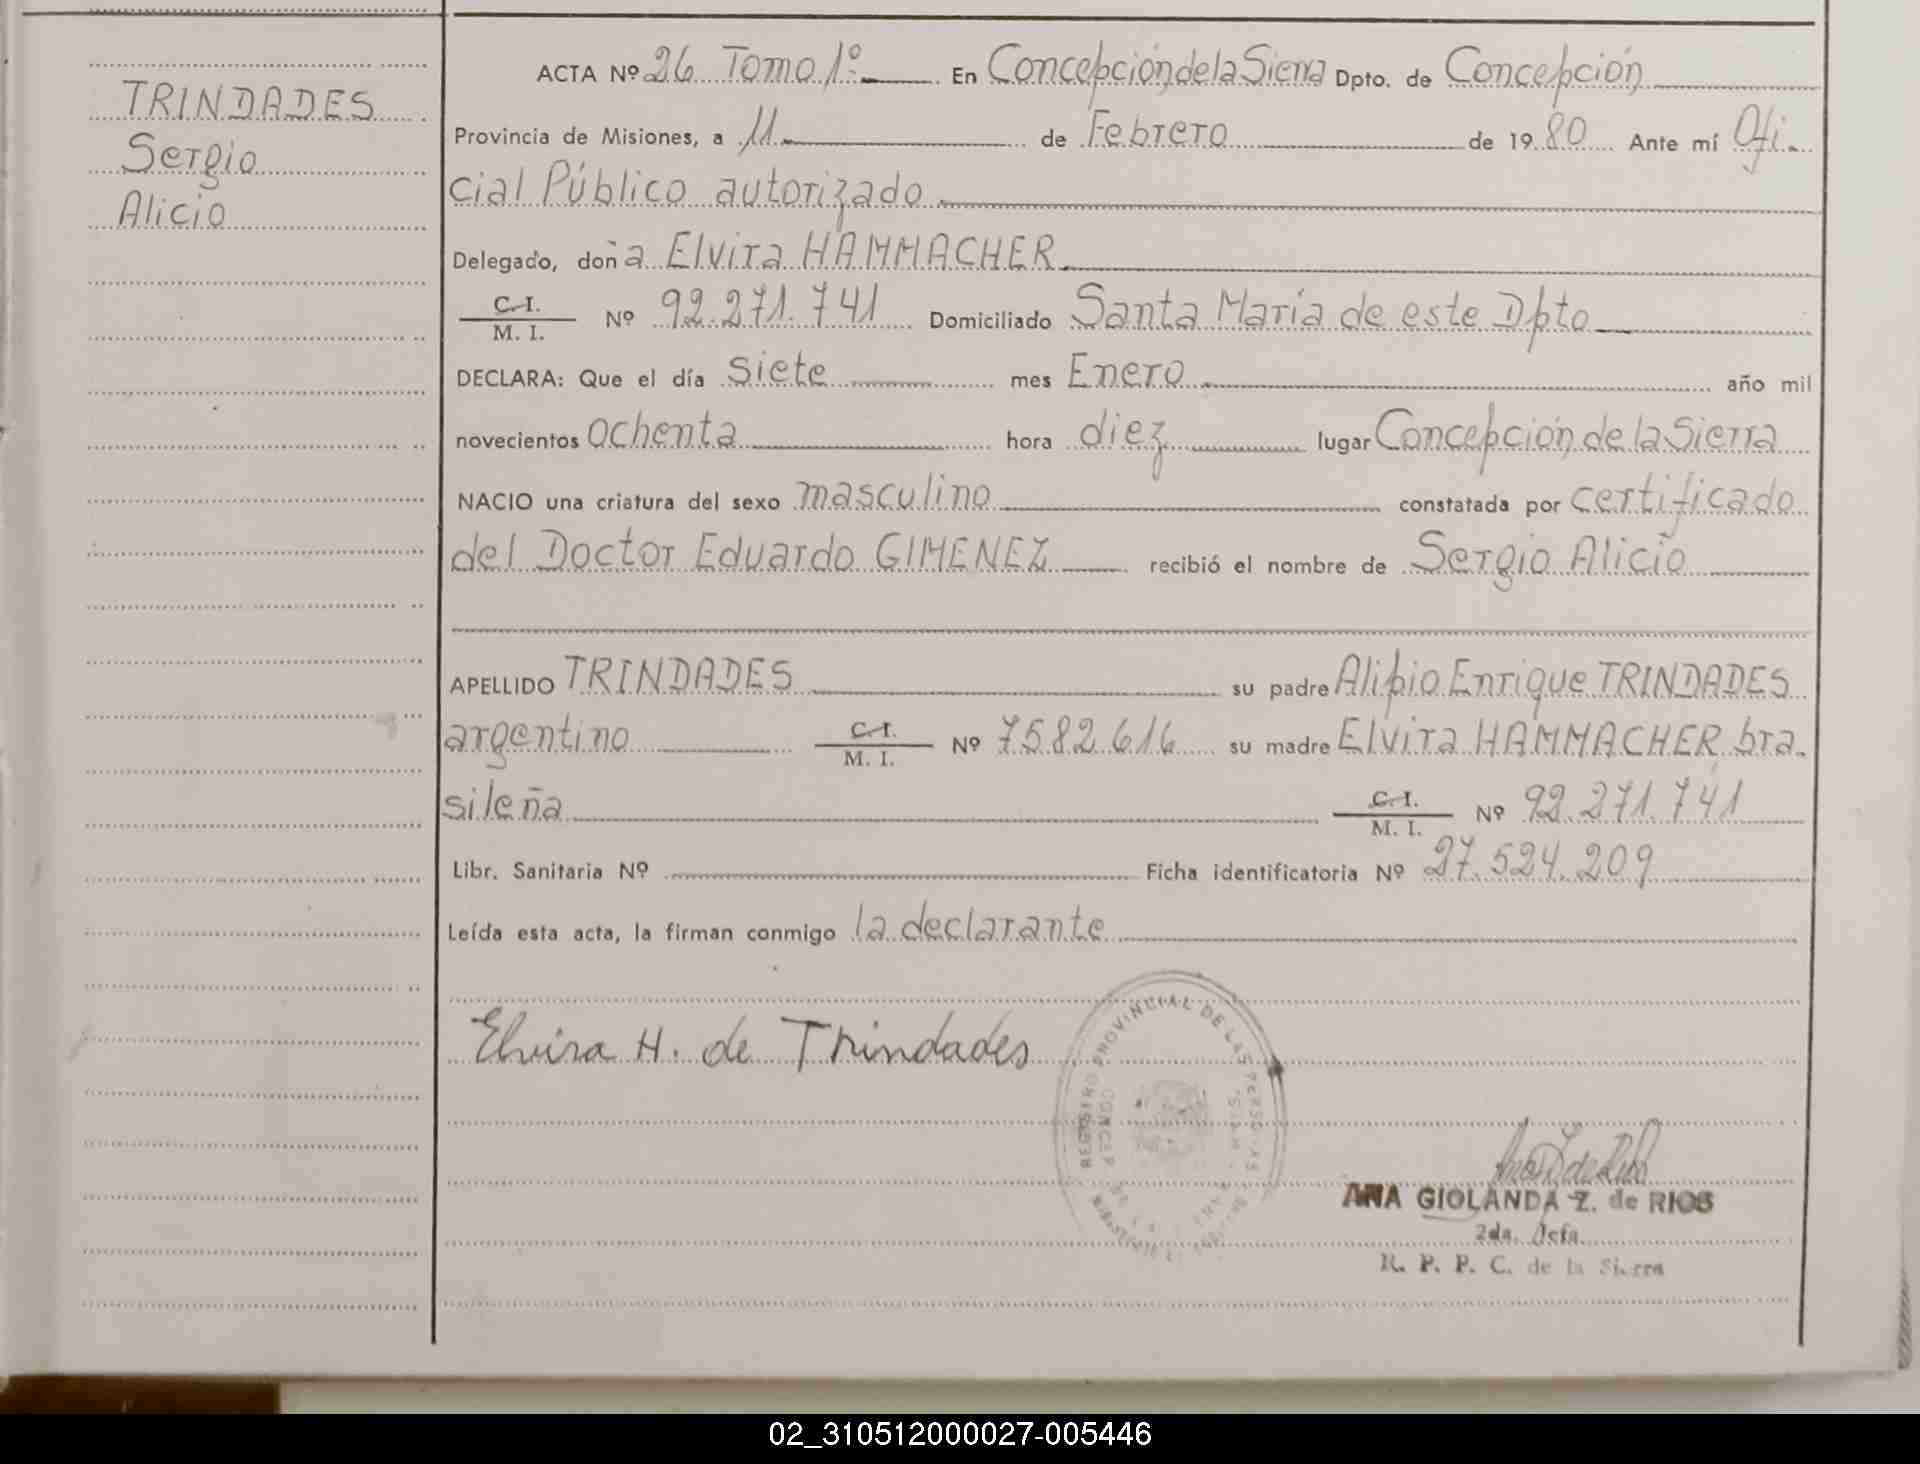 TRINDADES
Sergio
Alicio
ACTA Nº 26 Tomo 1º En Concepción de la Sierra Dpto. de Concepción
Provincia de Misiones, a 11 de Febrero de 1980 Ante mí Ofi-
cial Público autorizado
Delegado, doña Elvira HAMMACHER
C.I.
M. I. Nº 92.271.741 Domiciliado Santa María de este Dpto
DECLARA: Que el día siete mes Enero año mil
novecientos ochenta hora diez lugar Concepción de la Sierra
NACIO una criatura del sexo masculino constatada por certificado
del Doctor Eduardo GIMENEZ recibió el nombre de Sergio Alicio
APELLIDO TRINDADES su padre Alipio Enrique TRINDADES
argentino C.I. M. I. Nº 7582.616 su madre Elvira HAMMACHER bra-
sileña C.I. M. I. Nº 92.271.741
Libr. Sanitaria Nº Ficha identificatoria Nº 27.524.209
Leída esta acta, la firman conmigo la declarante
Elvira H. de Trindades
REGISTRO PROVINCIAL DE LAS PERSONAS
ANA GIOLANDA Z. de RIOS
2da. Jefa
R. P. P. C. de la Sierra
02_310512000027-005446